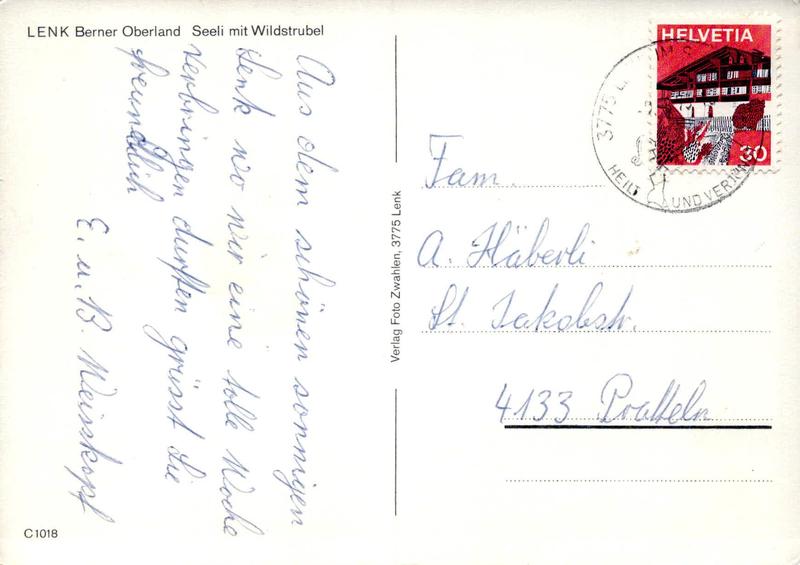 LENK Berner Oberland Seeli mit Wildstrubel
Aus dem schönen sonnigen
Lenk wo wir eine tolle Woche
verbringen durften grüsst Sie
freundlich
E. u. B. Weisskopf
C1018
Verlag Foto Zwahlen, 3775 Lenk
HELVETIA
30
3775 LENK IM S
HEILT UND VERJÜN
Fam.
A. Häberli
St. Jakobstr.
4133 Pratteln